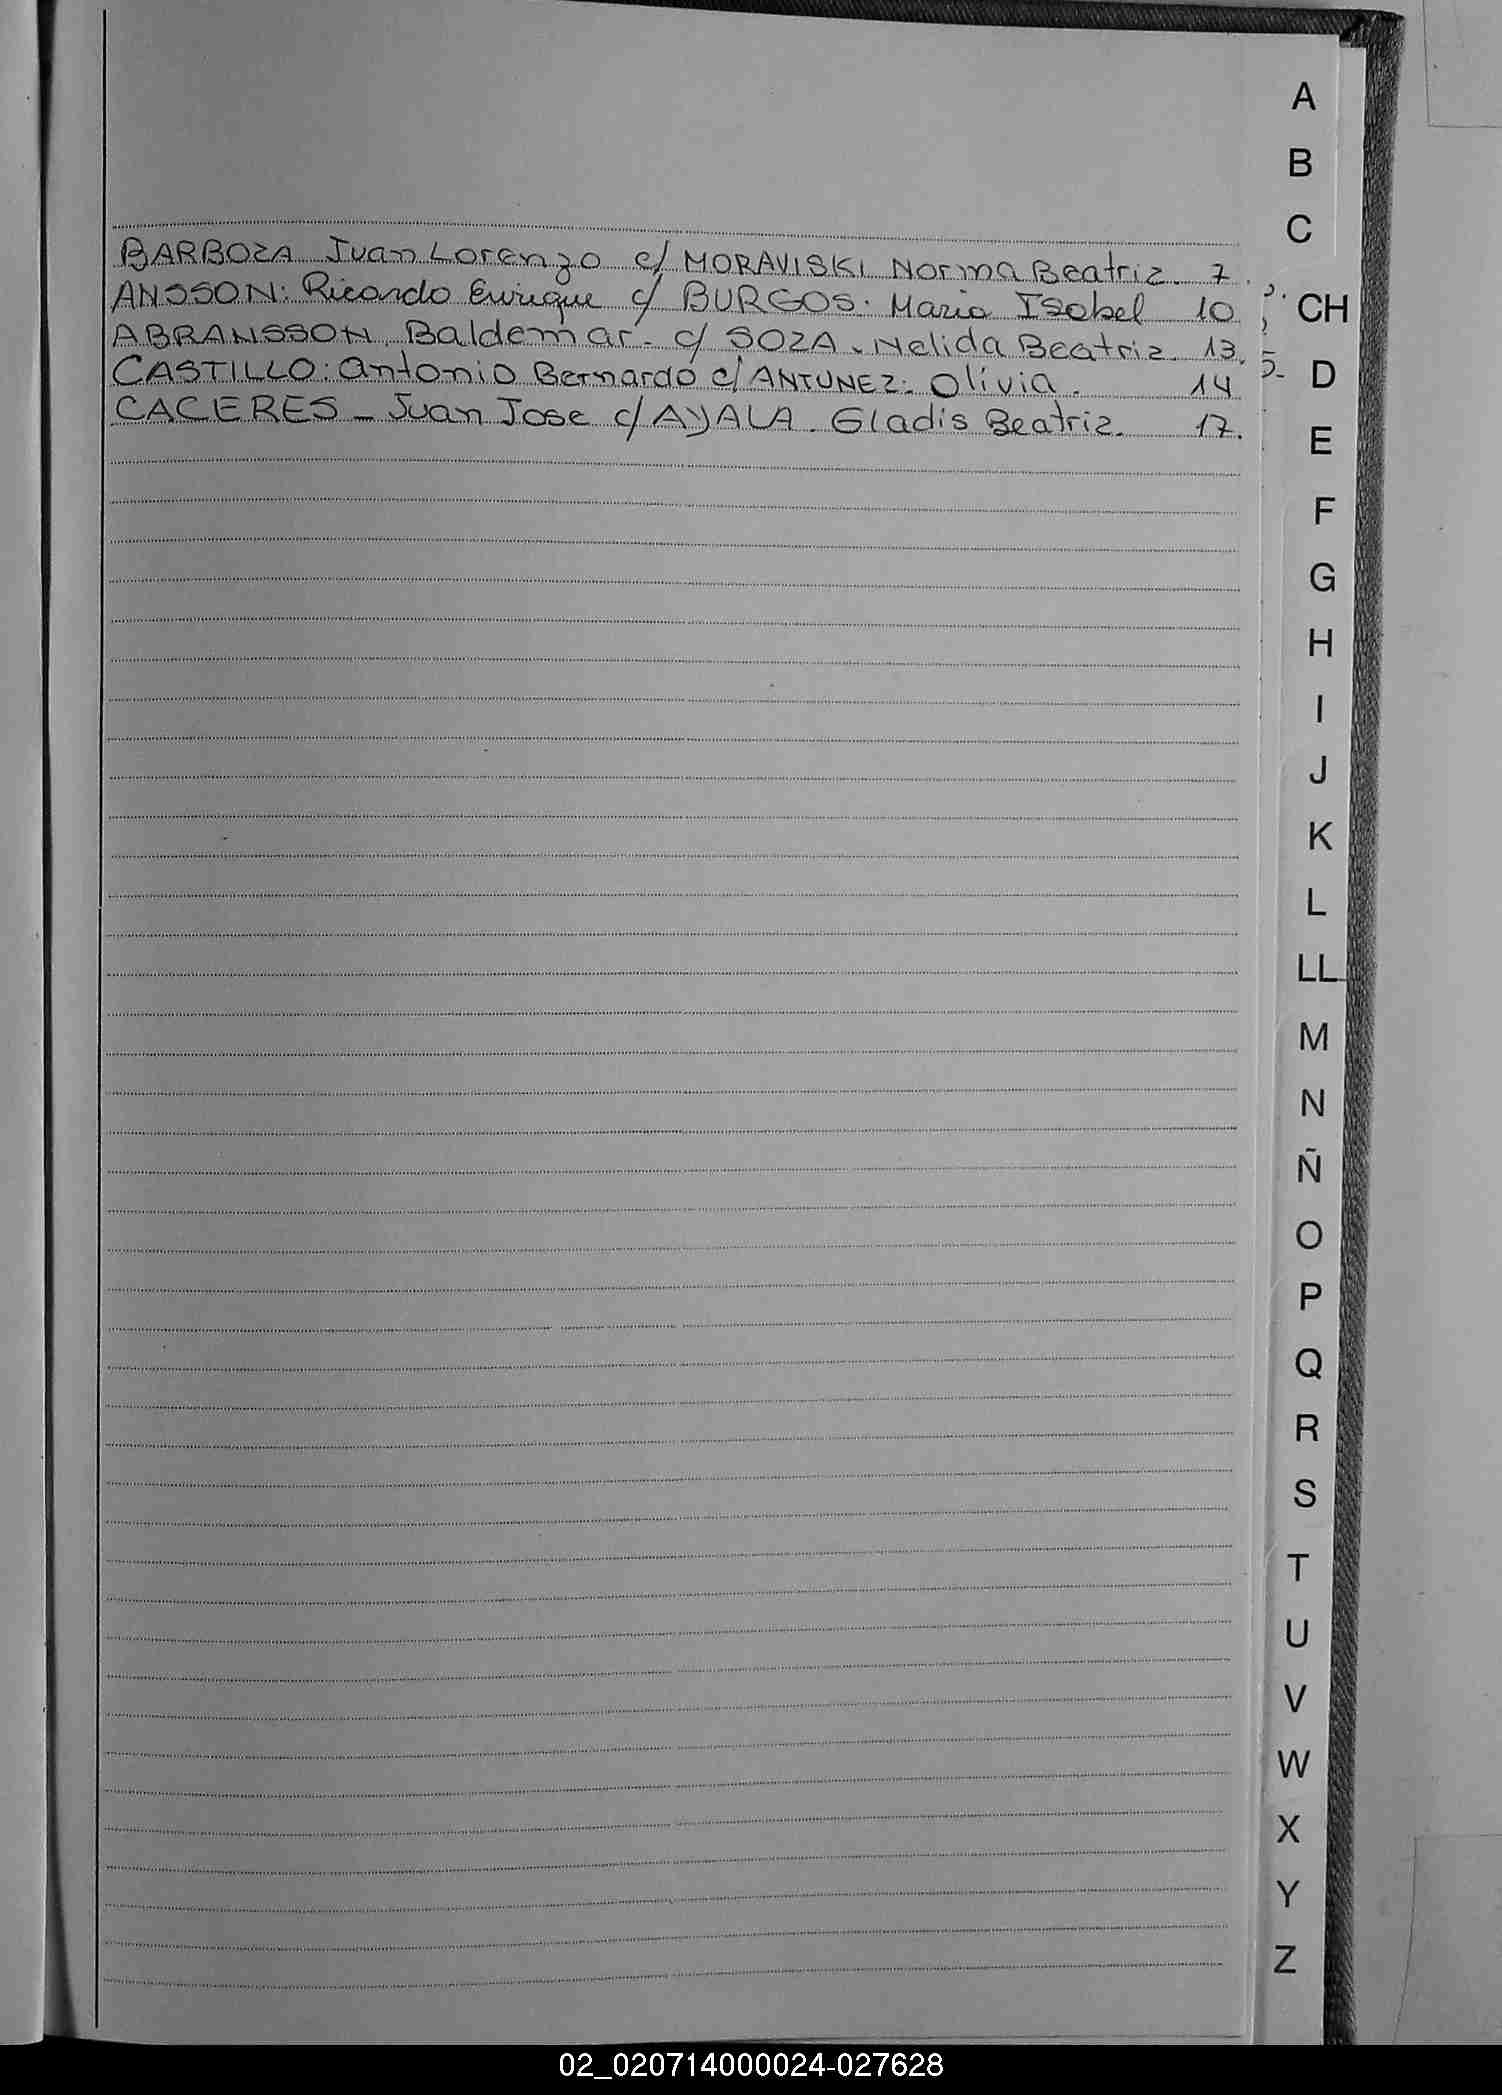 BARBOZA Juan Lorenzo c/ MORAVISKI Norma Beatriz. 7.
ANSSON: Ricardo Enrique c/ BURGOS: Maria Isabel 10
ABRANSSON, Baldemar. c/ SOZA. Nelida Beatriz. 13.
CASTILLO: Antonio Bernardo c/ ANTUNEZ: Olivia. 14
CACERES - Juan Jose c/ AYALA. Gladis Beatriz. 17.
5-
A
B
C
CH
D
E
F
G
H
I
J
K
L
LL
M
N
Ñ
O
P
Q
R
S
T
U
V
W
X
Y
Z
02_020714000024-027628